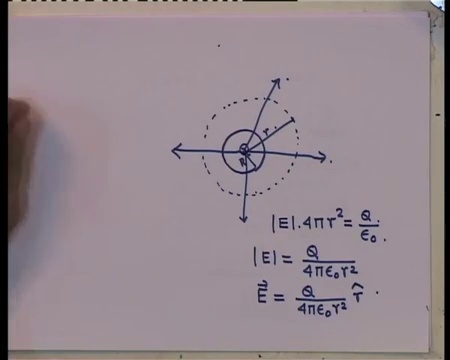 r
Q
R
|E|.4πr² = Q/ε₀.
|E| = Q/4πε₀r²
E⃗ = Q/4πε₀r² r̂